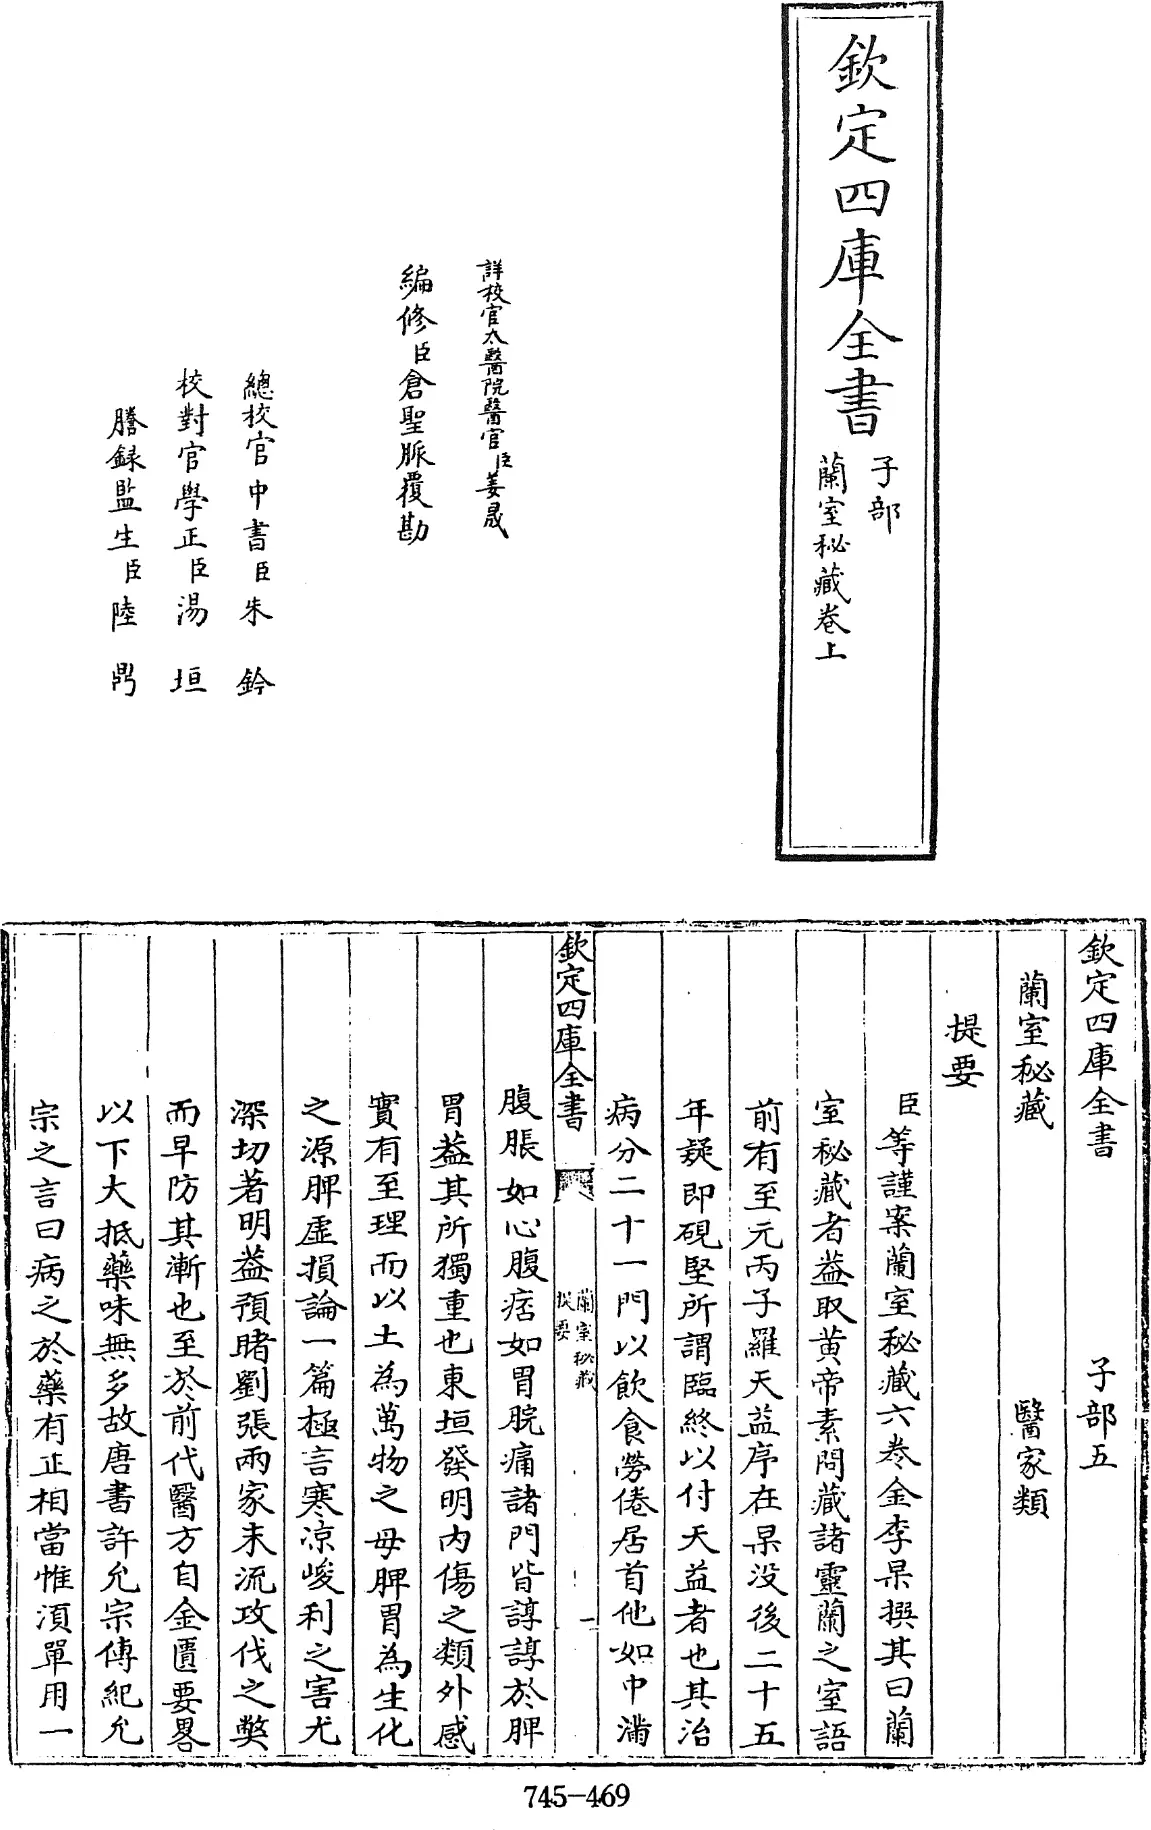 欽定四庫全書
子部
蘭室秘藏卷上
詳校官太醫院醫官臣姜晟
編修臣倉聖脈覆勘
總校官中書臣朱鈐
校對官學正臣湯垣
謄録監生臣陸𪔂
欽定四庫全書 子部五
蘭室秘藏 醫家類
提要
臣等謹案蘭室秘藏六卷金李杲撰其曰蘭
室秘藏者葢取黄帝素問藏諸靈蘭之室語
前有至元丙子羅天益序在杲没後二十五
年疑即硯堅所謂臨終以付天益者也其治
病分二十一門以飲食勞倦居首他如中滿
欽定四庫全書
蘭室秘藏
提要
一
腹脹如心腹痞如胃脘痛諸門皆諄諄於脾
胃葢其所獨重也東垣發明内傷之類外感
實有至理而以土為萬物之母脾胃為生化
之源脾虛損論一篇極言寒凉峻利之害尤
深切著明葢預睹劉張兩家末流攻伐之弊
而早防其漸也至於前代醫方自金匱要畧
以下大抵藥味無多故唐書許允宗傳紀允
宗之言曰病之於藥有正相當惟須單用一
745-469